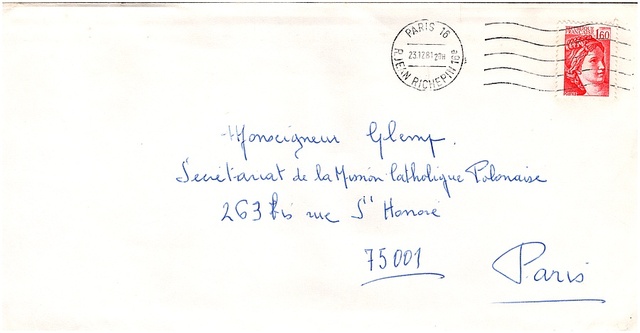 PARIS 16
23 12 81 20H
R. JEAN RICHEPIN 16e
1,60
Monseigneur Glemp.
Secrétariat de la Mission Catholique Polonaise
263 bis rue St Honoré
75001 Paris